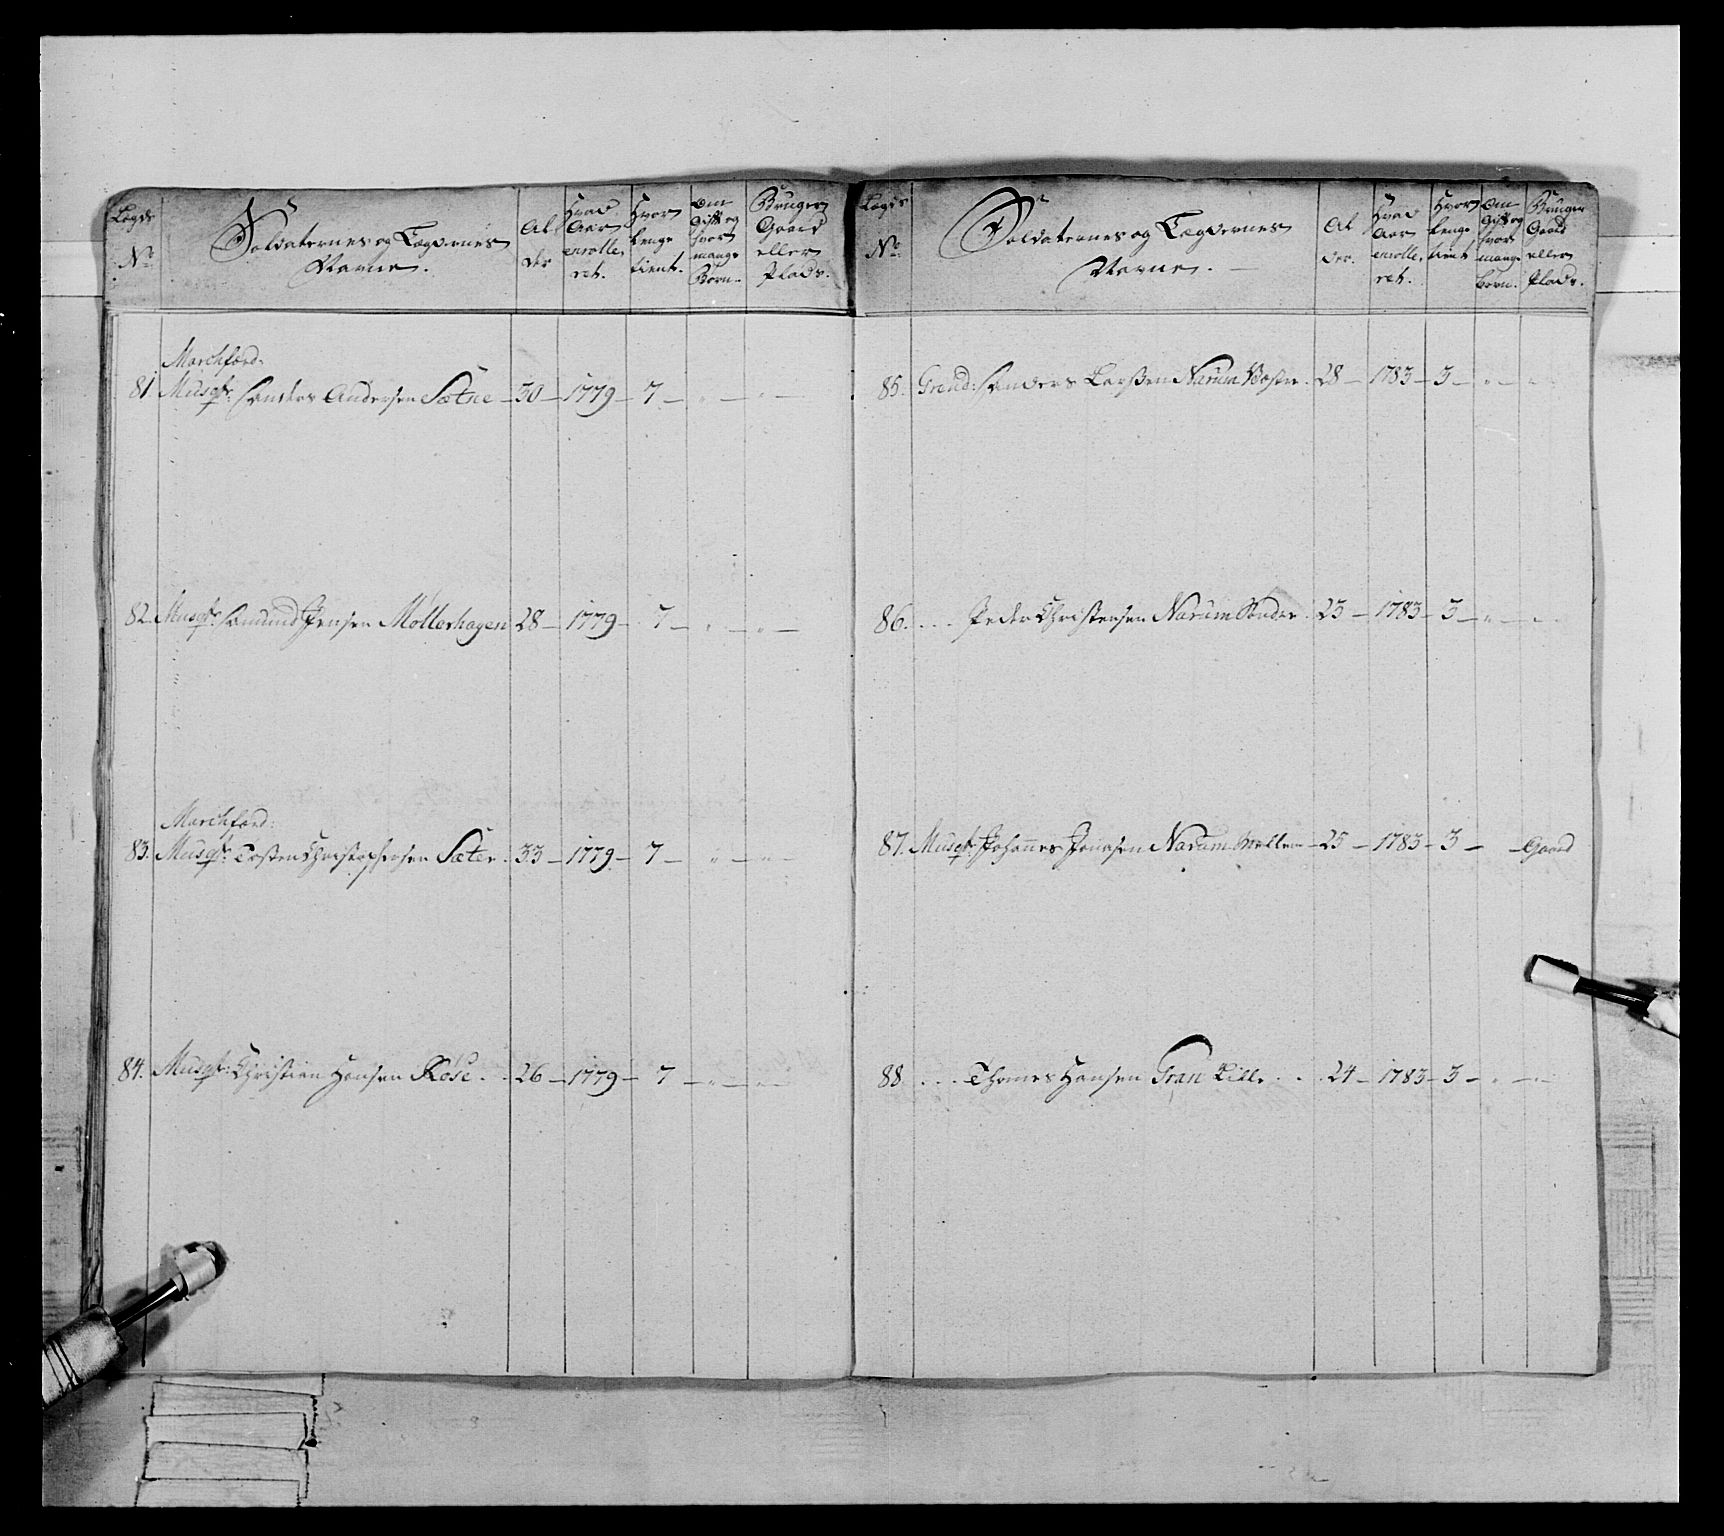 Legds
No
Soldaternes og Lægdernes
Navne.
Al
der
Hvad
Aar
enrolle,
ret.
Hvor
lenge
tient.
Om
Gift og
hvor
mange
Børn.
Bruger
Gaard
eller
Plads.
Marchford:
81. Musqt: Anders Andersen Sætne – 30 – 1779 – 7 – " – " –
82. Musqt: Amund Jensen Möllerhagen 28 – 1779 – 7 – " – " –
Marchford:
83. Musqt: Tosten Christophersen Sæter . 33 – 1779 – 7 – " – "
84. Musqt: Christian Hansen Rose . . 26 – 1779 – 7 – " – " –
Legds
No
Soldaternes og Lægdernes
Navne.
Al
der.
Hvad
Aar
enrolle,
ret.
Hvor
lenge
tient
Om
Gift og
hvor
mange
Børn.
Bruger
Gaard
eller
Plads.
85. Grend: Anders Larssen Narum Vestre . 28 – 1783 – 3 – " – "
86. . . . Peder Christensen Narum Søndre . 23 – 1783 – 3 – " – "
87. Musqt: Johannes Jonasen Narum Mellem – 25 – 1783 – 3 – – Gaard
88 . . . Thomes Hansen Gran Lille . . . 24 – 1783 – 3 – " – "